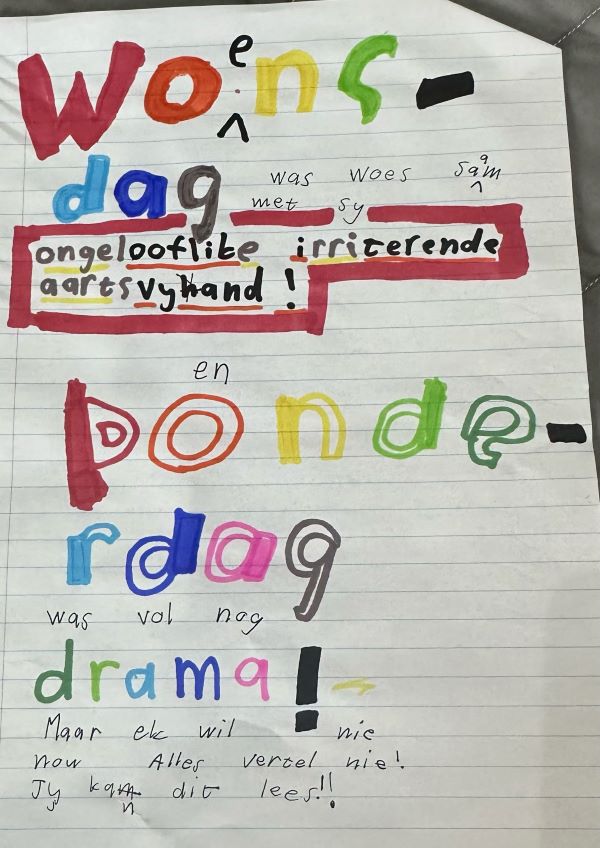 Woens-
dag was woes saam
met sy
ongelooflike irriterende
aartsvyand !
en
Donde-
rdag
was vol nog
drama!
Maar ek wil nie
now Alles vertel nie!
Jy kan dit lees!!